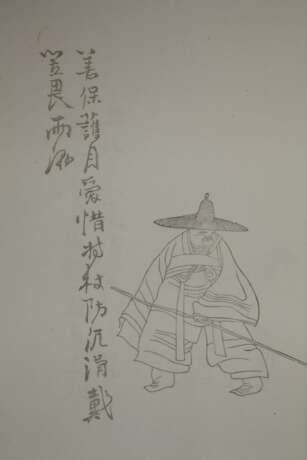 善保護自愛惜持杖防沉滑戴
笠畏雨風